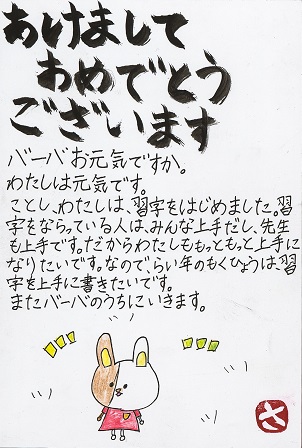 あけまして
おめでとう
ございます
バーバお元気ですか。
わたしは元気です。
ことし、わたしは、習字をはじめました。習
字をならっている人は、みんな上手だし、先生
も上手です。だからわたしももっともっと上手に
なりたいです。なので、らい年のもくひょうは、習
字を上手に書きたいです。
またバーバのうちにいきます。
さ